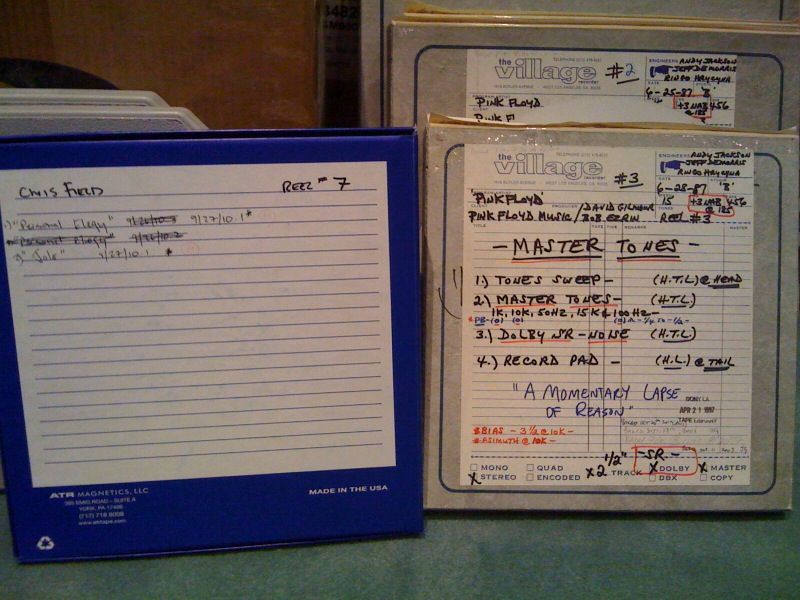 CHRIS FIELD REEL #7
1) "Personal Elegy" 9/26/10.3 9/27/10.1*
"Personal Elegy" 9/26/10.2
2) "Jule" 9/27/10.1 *
ATR MAGNETICS, LLC
YORK, PA 17406
(717) 718 8008
www.atrtape.com
MADE IN THE USA
the village recorder
#2
ENGINEERS ANDY JACKSON
JEFF DEMORRIS
RINGO HRYCYNA
6-25-87 'B'
+3 NAB 456
@ 185
PINK FLOYD
PINK FL
the village recorder
#3
ENGINEERS ANDY JACKSON
JEFF DEMORRIS
RINGO HRYCYNA
DATE
6-28-87 'B'
15 +3 NAB 456
@ 185
"PINK FLOYD"
CLIENT PRODUCER TONES
PINK FLOYD MUSIC / DAVID GILMOUR / BOB EZRIN REEL #3
TITLE TAPE TIME REMARKS
- MASTER TONES -
1.) TONES SWEEP - (H.T.L) @ HEAD
2.) MASTER TONES - (H.T.L)
1K, 10K, 50HZ, 15K & 100HZ -
3.) DOLBY SR - NOISE (H.T.L)
4.) RECORD PAD - (H.L.) @ TAIL
"A MOMENTARY LAPSE
OF REASON"
SONY LA
APR 21 1997
TAPE LIBRARY
*BIAS - 3 1/2 @ 10K -
*AZIMUTH @ 10K -
-SR-
MONO QUAD x2 1/2" TRACK X DOLBY X MASTER
X STEREO ENCODED DBX COPY